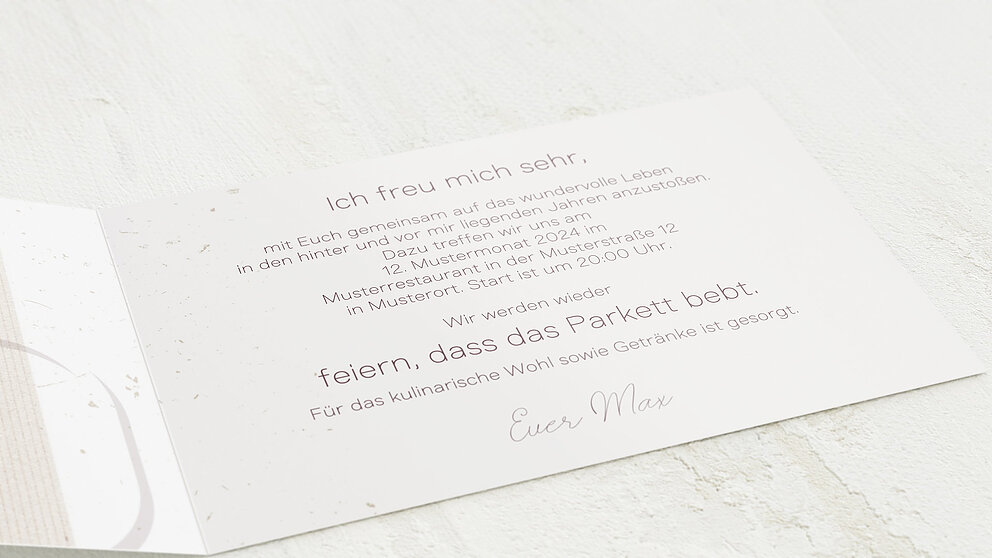 Ich freu mich sehr,
mit Euch gemeinsam auf das wundervolle Leben
in den hinter und vor mir liegenden Jahren anzustoßen.
Dazu treffen wir uns am
12. Mustermonat 2024 im
Musterrestaurant in der Musterstraße 12
in Musterort. Start ist um 20:00 Uhr.
Wir werden wieder
feiern, dass das Parkett bebt.
Für das kulinarische Wohl sowie Getränke ist gesorgt.
Euer Max